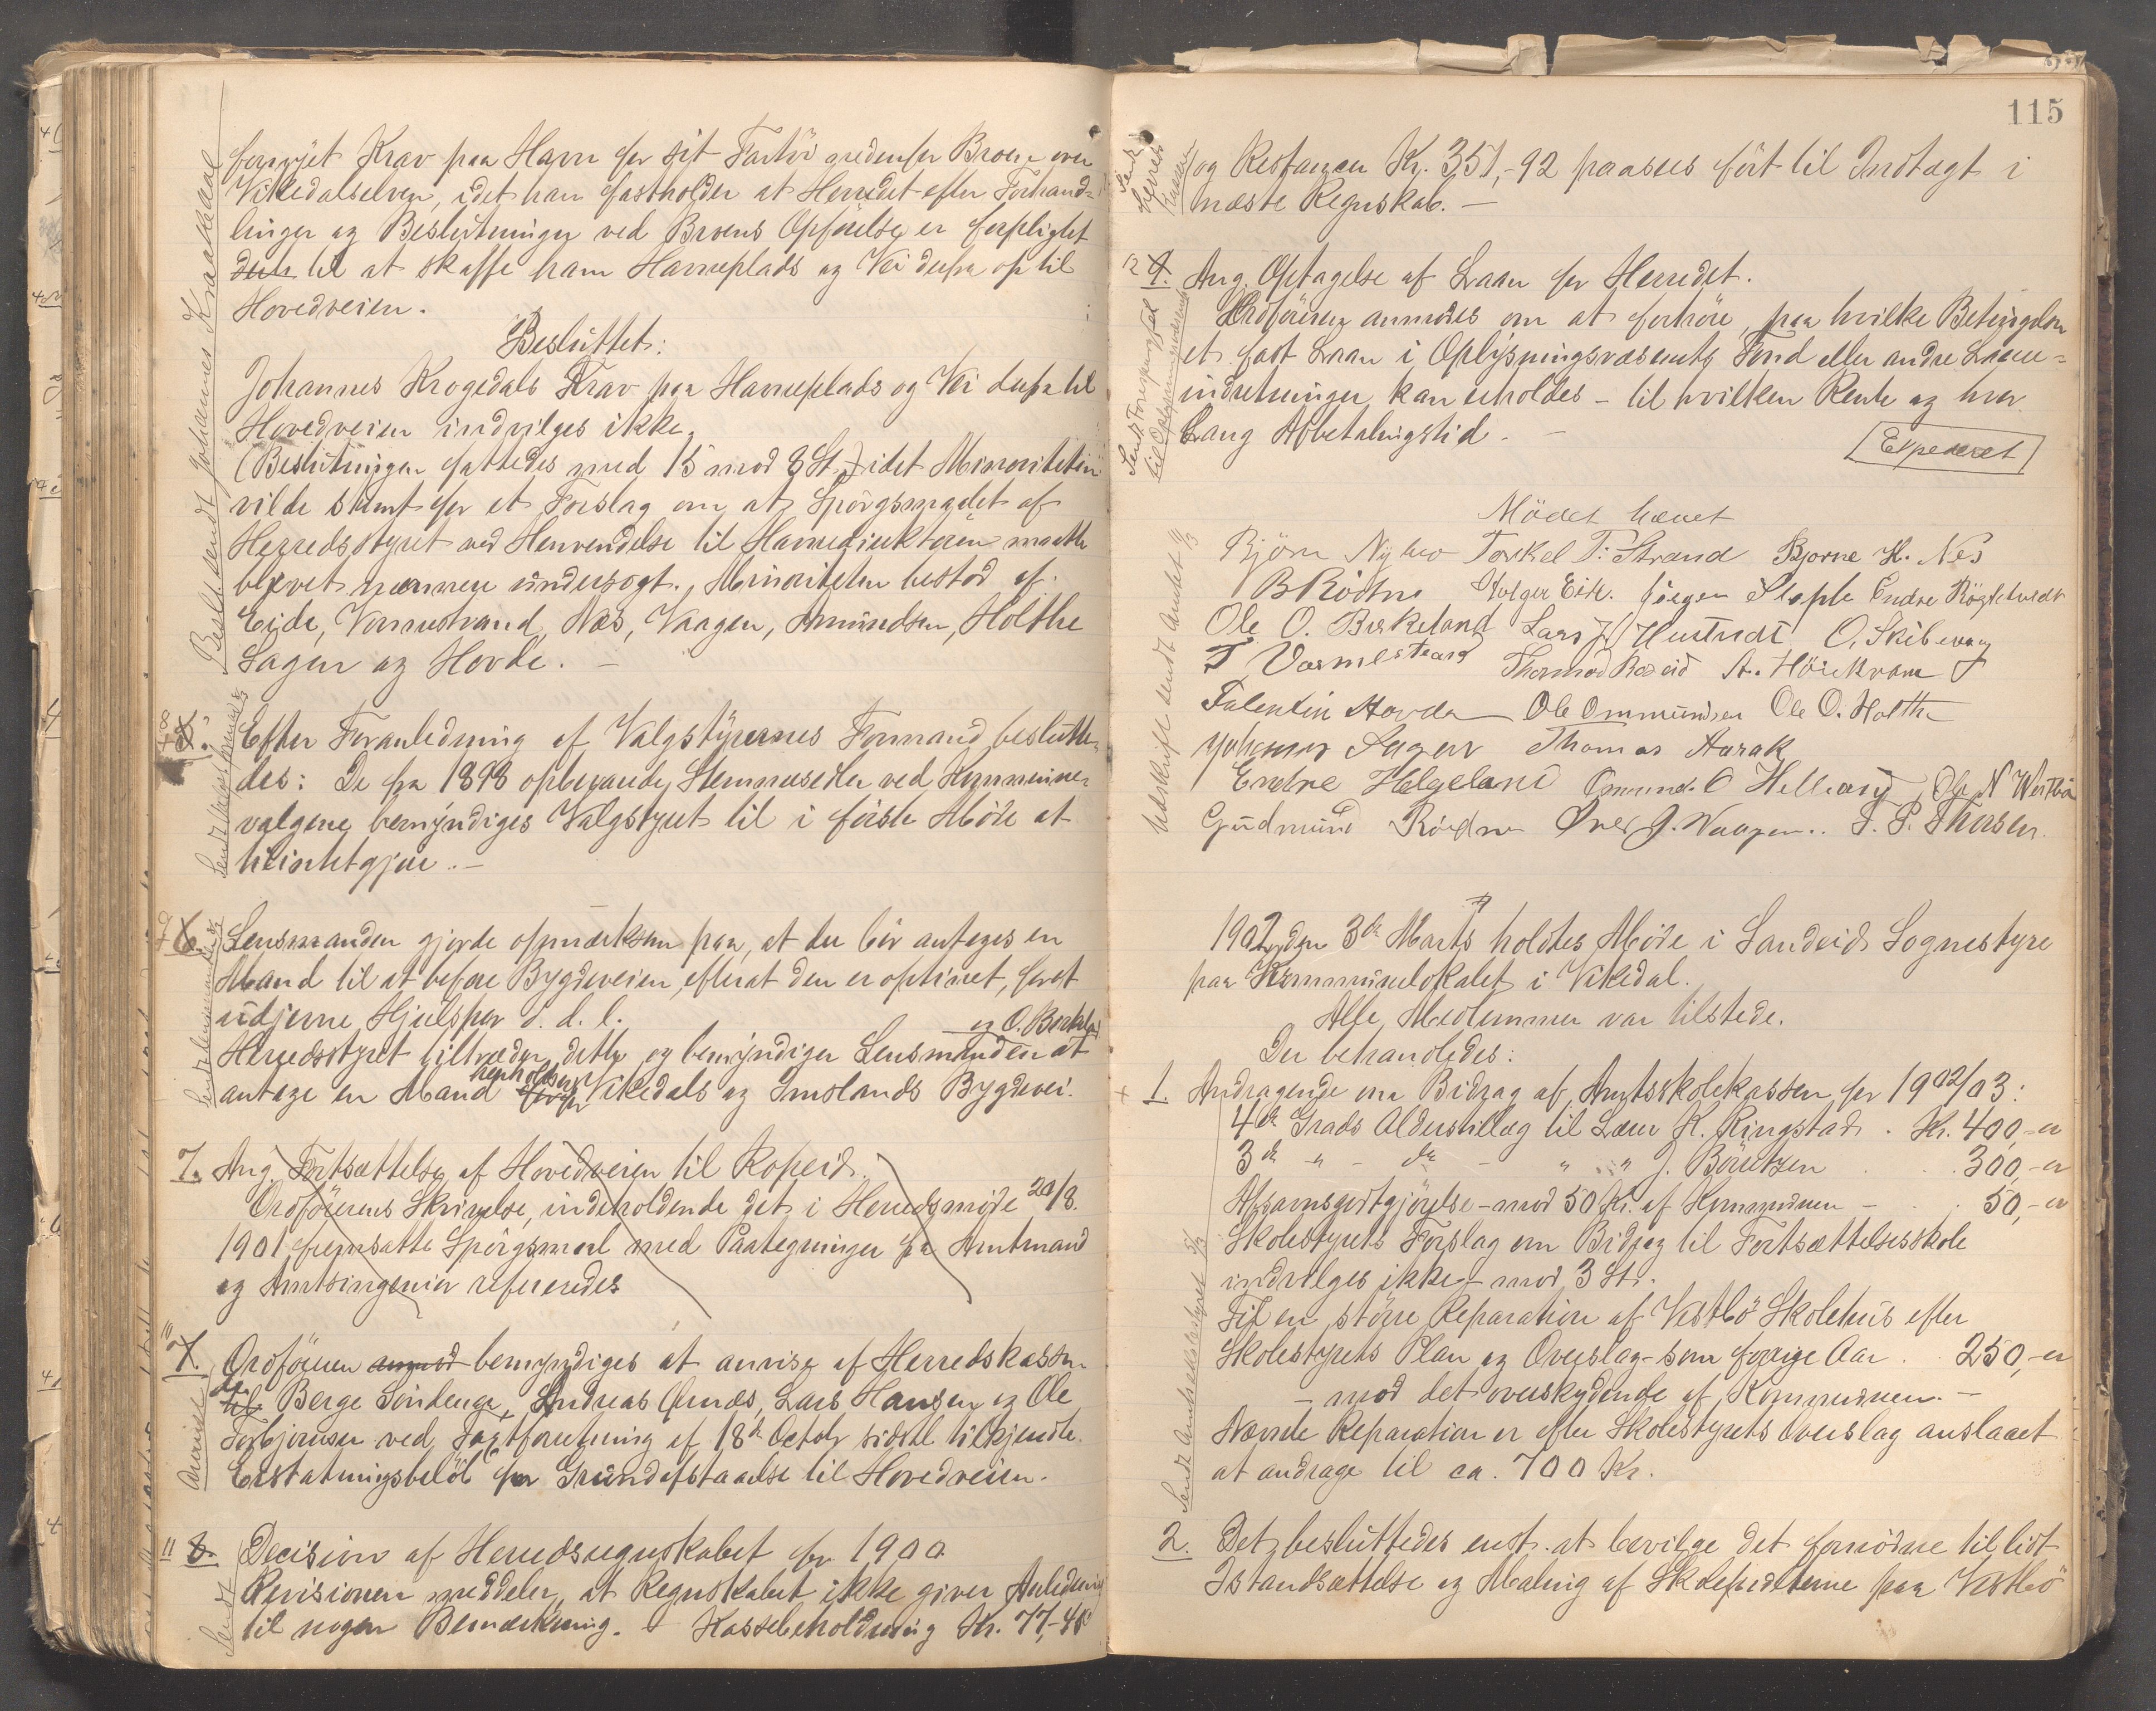 fornyet Krav paa Havn for sit Fartöi nedenfor Broen over
Vikedalselven, idet han fastholder at Herredet efter Forhand=
linger og Beslutninger ved Broens Opförelse er forpligtet
til at skaffe ham Havneplads og Vei derfra op til
Hovedveien.
Besluttet:
Johannes Krogedals Krav paa Havneplads og Vei derfra til
Hovedveien indvilges ikke.
(Beslutningen fattedes med 15 mod 8 St.) idet Minoriteten
vilde stemt for et Forslag om at Spörgsmaalet af
Herredsstyret ved Henvendelse til Havnedirektören maatte
blevet nærmere undersogt. Minoriteten bestod af
Eide, Vormestrand, Næs, Vaagen, Amundsen, Holthe
Sagen og Hovde. —
Besl. sendt Johannes Kraakdaal
8
Efter Foranledning af Valgstyrernes Formand beslutte-
des: De fra 1898 opbevarede Stemmesedler ved Kommune-
valgene bemyndiges Valgstyret til i förste Möde at
tilintetgjøre. —
9 6.
Lensmanden gjorde opmærksom paa, at der bör antages en
Mand til at befare Bygdeveien, efterat den er optinet, for at
udjevne Hjulspor o. d. l.
og O. Birkeland
Herredsstyret tiltræder dette og bemyndiger Lensmanden at
antage en Mand henholdsvis Vikedals og Imslands Bygdevei.
7. Ang. Fortsættelse af Hovedveien til Ropeid.
Ordförerens Skrivelse, indeholdende det i Herredsmöde 20/8.
1901 fremsatte Spörgsmaal med Paategninger fra Amtmand
og Amtsingeniör refereredes
10 7.
Ordföreren bemyndiges at anvise af Herredskassen
de til Berge Söndenaa, Andreas Lunds, Lars Hansen og Ole
Torbjørnsen ved Taxtforretning af 18de Octobr sidstl. tilkjendte
Erstatningsbelöb for Grundafstaaelse til Hovedveien.
Anvist
11 8.
Decision af Herredsregnskabet for 1900
Revisionen meddeler, at Regnskabet ikke giver Anledning
til nogen Bemærkning. — Kassebeholdning Kr. 77,40
Sendt
115
og Restancer Kr. 351,-92 paasees fört til Indtægt i
næste Regnskab. —
12 9. Ang. Optagelse af Laan for Herredet.
Ordföreren anmodes om at forhöre, paa hvilke Betingelser
et fast Laan i Oplysningsvæsenets Fond eller andre Laane=
indretninger kan erholdes – til hvilken Rente og hvor
Lang Afbetalingstid. —
Expederet
Sendt Forespørgsel til Oplysningsvæsenet
Mödet hævet
Björn Nybro Torkel T. Strand Bjorne H. Nes
B Röthe Holger Eide. Jörgen Stople Endre
Ole O. Birkeland Lars O. Skibevaag
T Vormestrand Thormod Røseid A. Höiekvam
Falentin Hovda Ole Ommundsen Ole O. Holthe
Johannes Sagen Thomas Aarak
Endre Helgeland Omund. O Helland Ole N Westbö
Gudmund Rödne J. Waagen.. T. T. Thorsen.
Udskrift sendt Amtet 11/3
1902, den 3de Marts holdtes Möde i Sandeid Sognestyre
paa Kommunelokalet i Vikedal.
Alle Medlemmer var tilstede.
Der behandledes:
1. Andragende om Bidrag af Amtsskolekassen for 1902/03:
4de Grads Alderstillæg til Lærer K. Ringstad . Kr. 400,-er
3de „ - do - „ „ J. Böretzen . . 300,-er
Afsavnsgodtgjörelse – mod 50 Kr. af Kommunen — . 50,-er
Skolestyrets Forslag om Bidrag til Fortsættelsesskole
indvilges ikke – mod 3 St.
Til en större Reparation af Vestbö Skolehus efter
Skolestyrets Plan og Overslag – som forrige Aar . 250,-er
– mod det overskydende af Kommunen. —
Nævnte Reparation er efter Skolestyrets Overslag anslaaet
at andrage til ca. 700 Kr.
2. Det besluttedes enst. at bevilge det fornödne til lidt
Istandsættelse og Maling af Skolepultene paa Vestbö